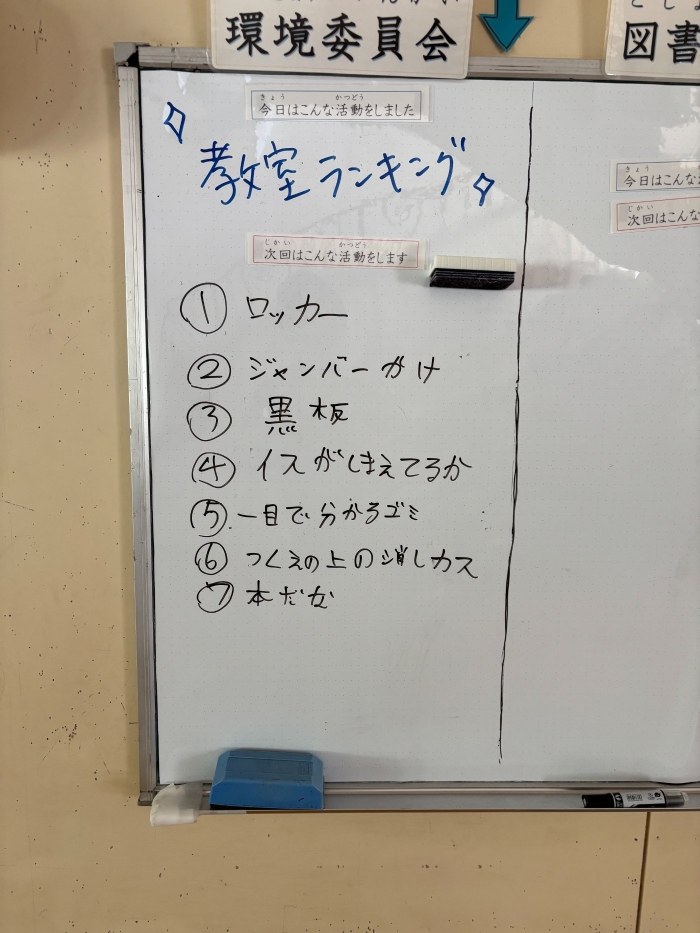 環境委員会
図書
きょう かつどう
今日はこんな活動をしました
教室ランキング
じかい かつどう
次回はこんな活動をします
① ロッカー
② ジャンバーかけ
③ 黒板
④ イスがしまえてるか
⑤ 一目で分かるゴミ
⑥ つくえの上の消しカス
⑦ 本だな
きょう
今日はこんな
じかい
次回はこんな